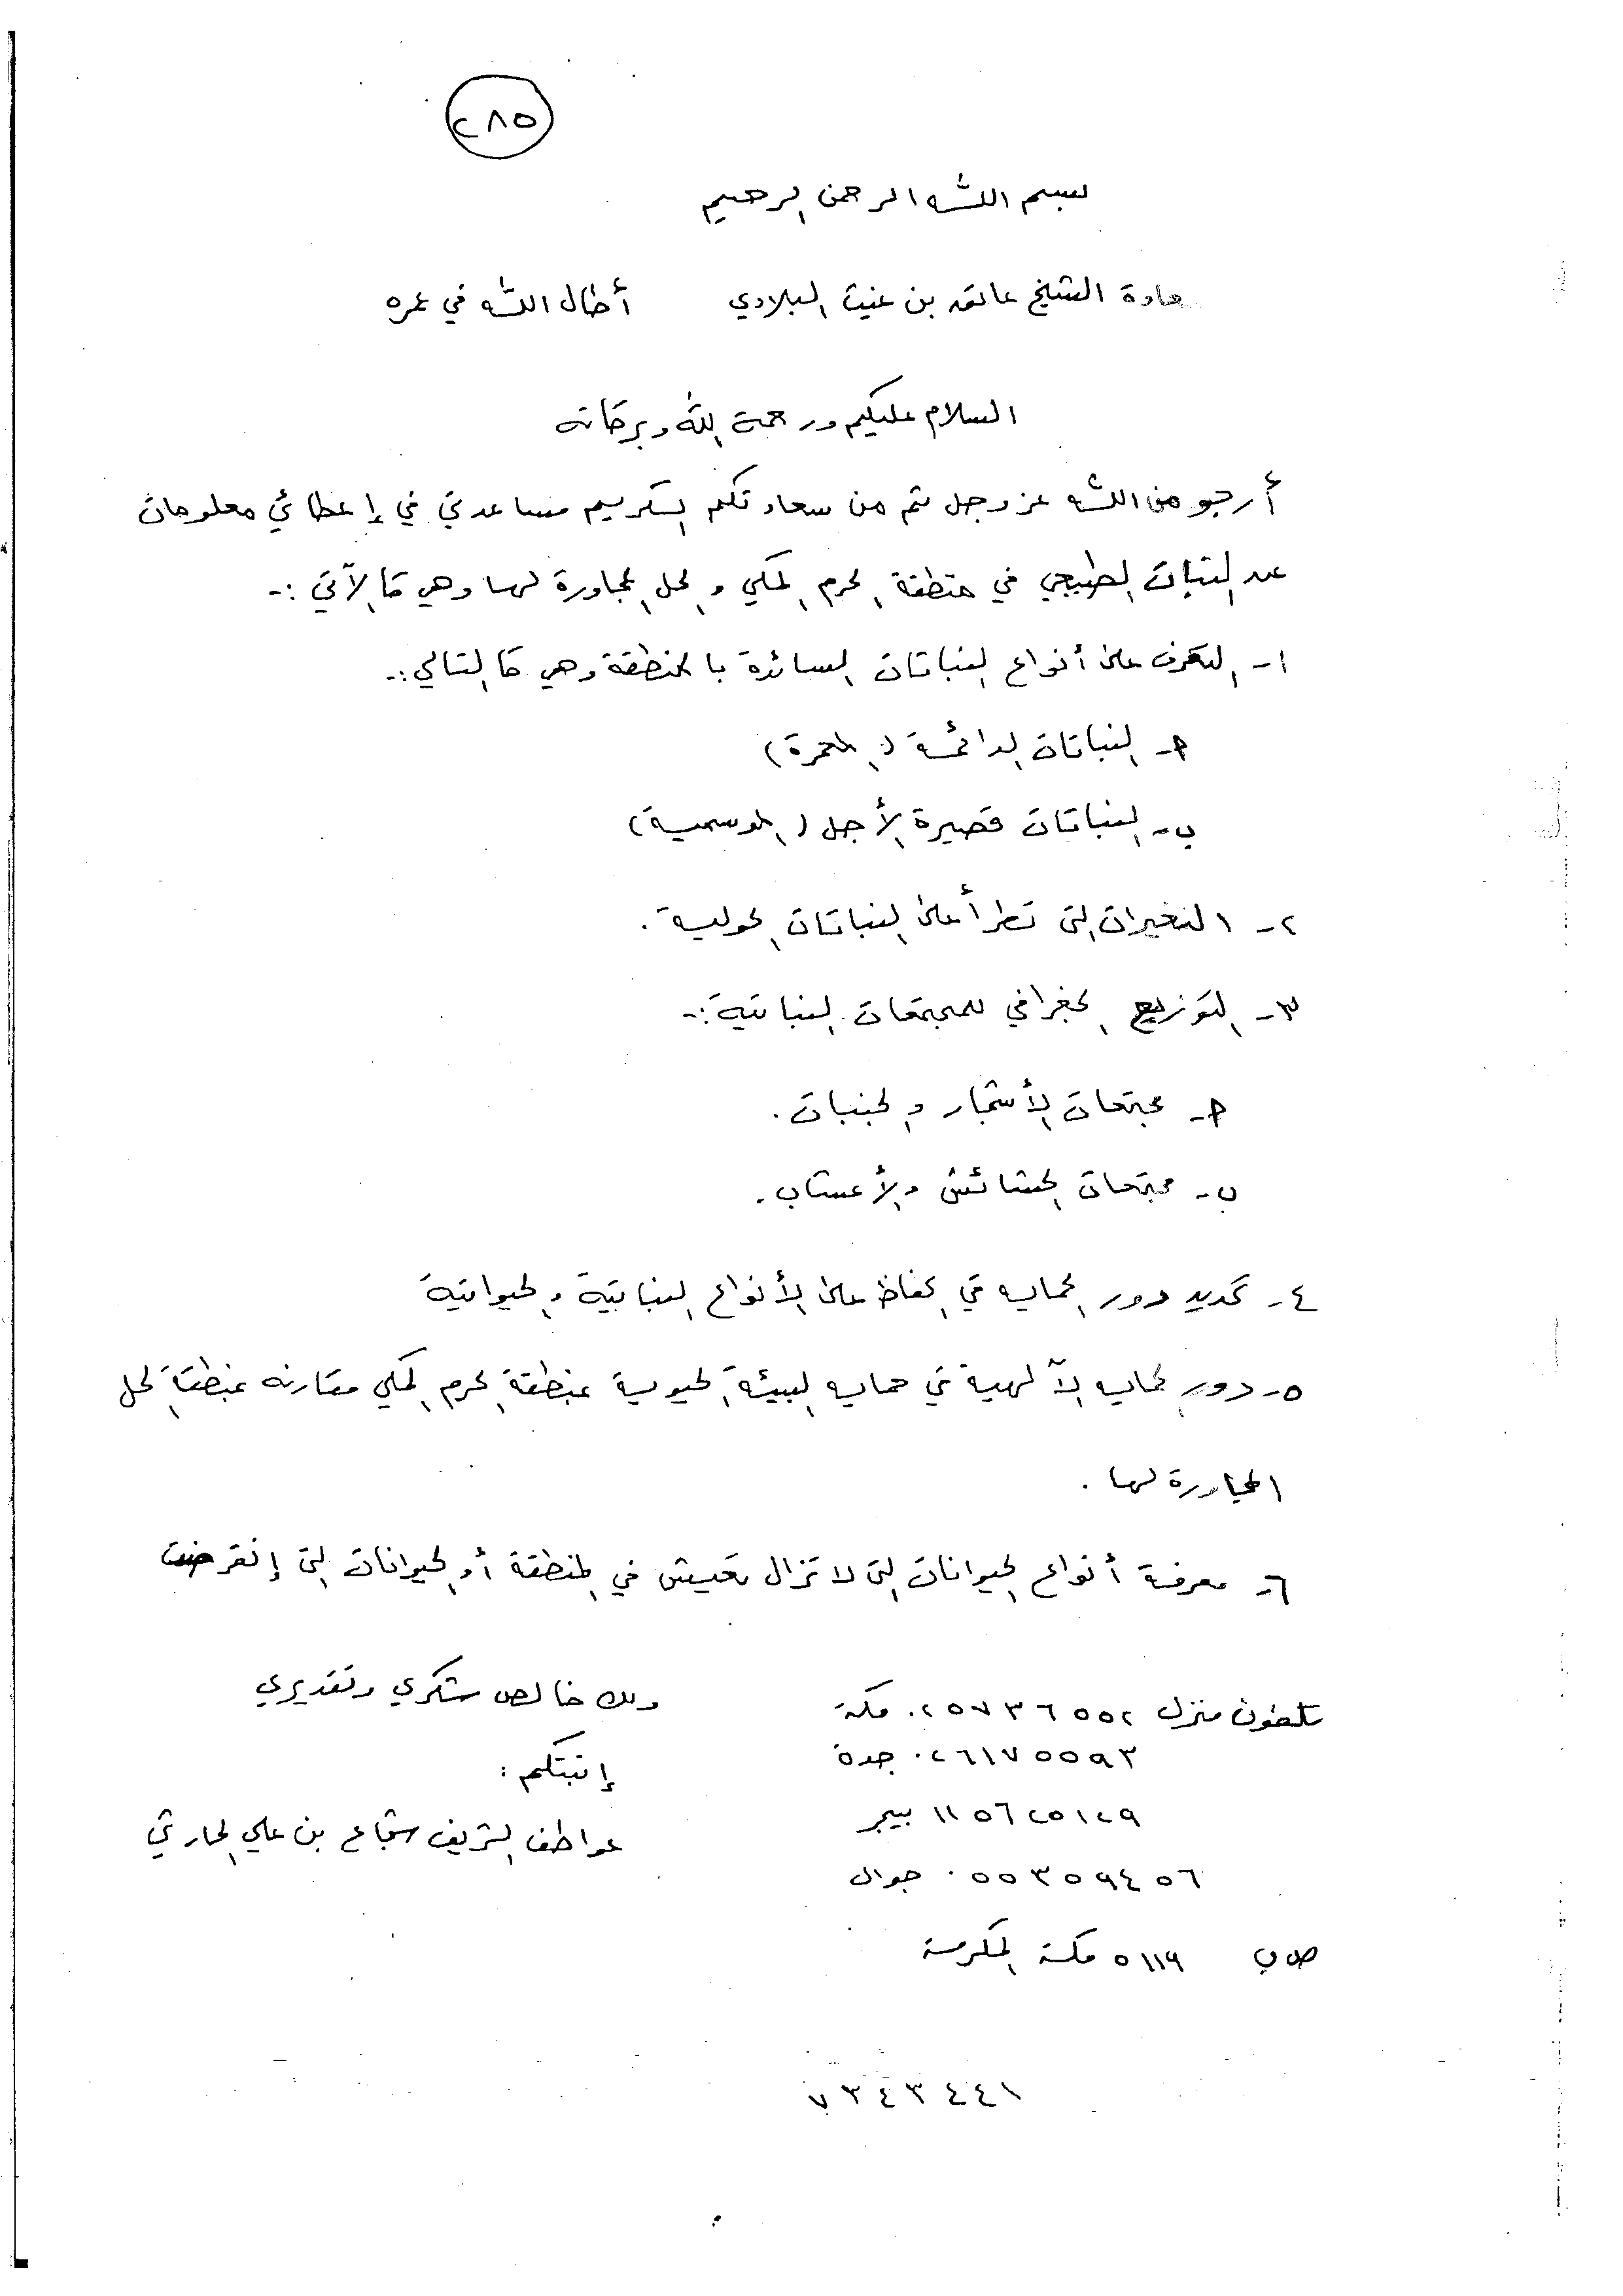 ٢٨٥
بسم الله الرحمن الرحيم
سعادة الشيخ عاتق بن غيث البلادي أطال الله في عمره
السلام عليكم ورحمة الله وبركاته
أرجو من الله عز وجل ثم من سعادتكم الكريم مساعدتي في إعطائي معلومات
عن النبات الطبيعي في منطقة الحرم المكي والحل المجاورة لها وهي كالآتي :-
١- التعرف على أنواع النباتات السائدة بالمنطقة وهي كالتالي :-
أ- النباتات الدائمة (المعمرة)
ب- النباتات قصيرة الأجل (الموسمية)
٢- التغيرات التي تطرأ على النباتات الحولية .
٣- التوزيع الجغرافي للمجتمعات النباتية :-
أ- مجتمعات الأشجار والجنبات .
ب- مجتمعات الحشائش والأعشاب .
٤- تحديد دور الحمايه في الحفاظ على الأنواع النباتية والحيوانية
٥- دور الحمايه الآلهية في حمايه البيئة الحيوية بمنطقة الحرم المكي مقارنه بمنطقة الحل
المجاورة لها .
٦- معرفة أنواع الحيوانات التي لا تزال تعيش في المنطقة أو الحيوانات التي إنقرضت
ولك خالص شكري وتقديري
إبنتكم :
عواطف الشريف شجاع بن علي الحارثي
تلفون منزل ٠٢٥٧٣٦٥٥٢ مكة
٠٢٦١٧٥٥٩٣ جدة
١١٥٦٢٥١٢٩ بيجر
٠٥٥٣٥٩٤٥٦ جوال
ص ب ٥١١٩ مكة المكرمة
٧٣٤٣٤٤١